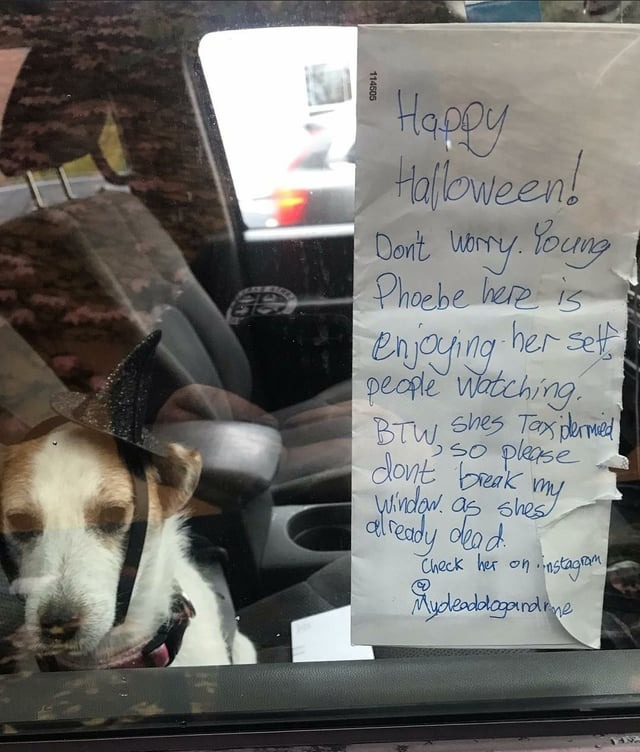 114505
Happy
Halloween!
Don't worry. Young
Phoebe here is
enjoying her self
people watching.
BTW shes Taxidermied
, so please
dont break my
window. as shes
already dead.
Check her on instagram
@
Mydeaddogandme